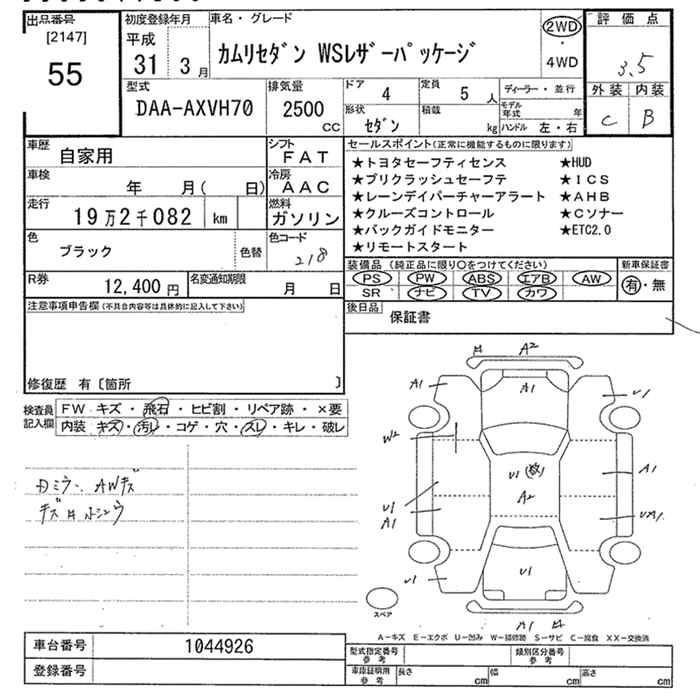 出品番号 初度登録年月 車名・グレード 2WD 評価点
[2147] 平成 カムリセダン WSレザーパッケージ ・ 3.5
55 31 3月 4WD
型式 排気量 ドア 4 定員 5人 ディーラー・並行 外装 内装
DAA-AXVH70 2500cc 形状 セダン 積載 kg モデル年式 年 C B
ハンドル 左・右
車歴 自家用 シフト FAT セールスポイント(正常に機能するものに限ります)
車検 年 月( 日) 冷房 AAC ★トヨタセーフティセンス ★HUD
★プリクラッシュセーフテ ★ICS
走行 19万2千082 km 燃料 ガソリン ★レーンデイパーチャーアラート ★AHB
★クルーズコントロール ★Cソナー
色 ブラック 色替 色コード 218 ★バックガイドモニター ★ETC2.0
★リモートスタート
R券 12,400円 名変通知期限 月 日 装備品(純正品に限り〇をつけてください) 新車保証書
PS PW ABS エアB AW 有・無
SR ナビ TV カワ
注意事項申告欄(不具合内容等は具体的に記入して下さい) 後日品 保証書
修復歴 有〔箇所 〕
検査員記入欄 FW キズ・飛石・ヒビ割・リペア跡・×要
内装 キズ・汚レ・コゲ・穴・スレ・キレ・破レ
A2
A1 A1 U1
W2
U1 A2 A1
U1
A1
U1 U1
A1
スペア
A-キズ E-エクボ U-凹み W-補修跡 S-サビ C-腐食 XX-交換済
車台番号 1044926 型式指定番号 参考 類別区分番号 参考
登録番号 車庫証明用 参考 長さ cm 幅 cm 高さ cm